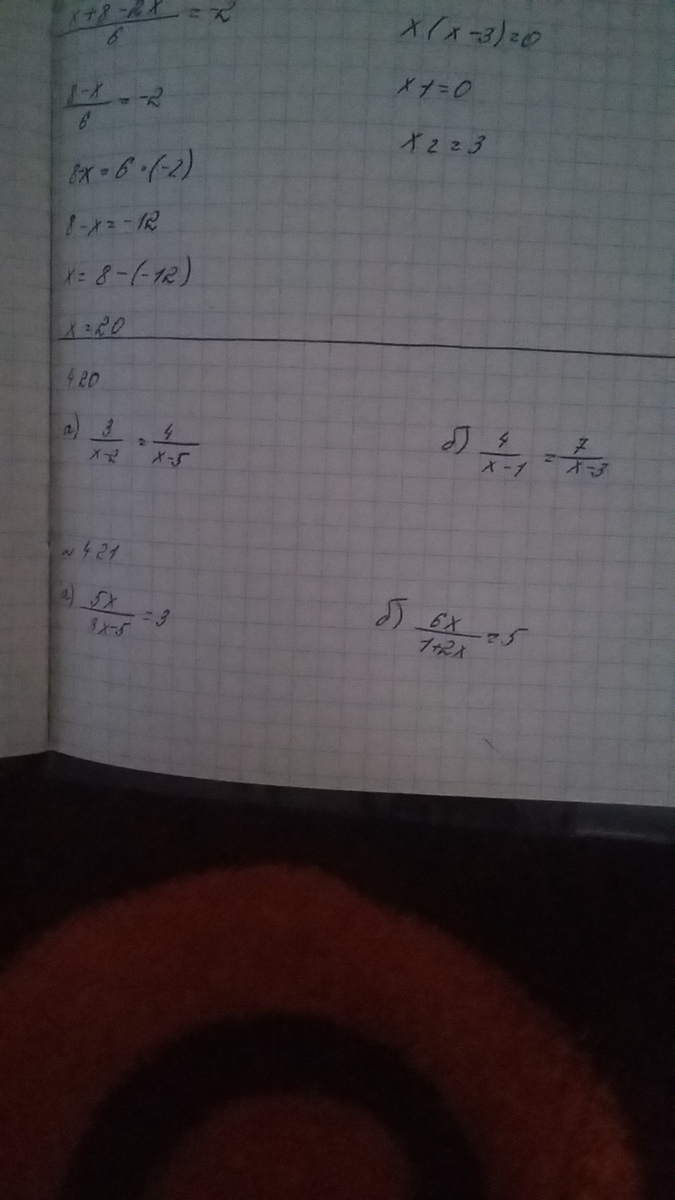 x+8-2x/6 = -2
8-x/6 = -2
8-x = 6·(-2)
8-x = -12
x = 8-(-12)
x = 20
x(x-3)=0
x1=0
x2=3
420
а) 3/x-2 = 4/x-5
б) 4/x-1 = 7/x-3
№421
а) 5x/8x-5 = 3
б) 6x/1+2x = 5